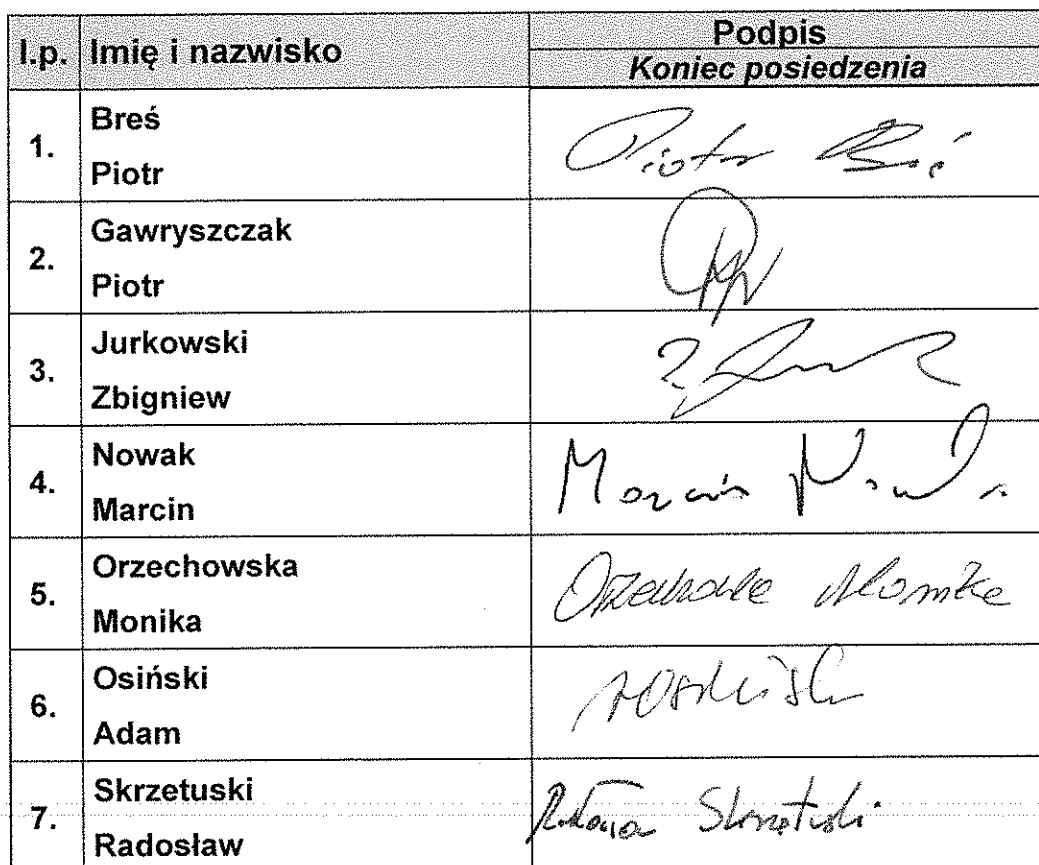 l.p. Imię i nazwisko Podpis
Koniec posiedzenia
1. Breś
Piotr
Piotr Breś
2. Gawryszczak
Piotr
3. Jurkowski
Zbigniew
4. Nowak
Marcin
Marcin Nowak
5. Orzechowska
Monika
Orzechowska Monika
6. Osiński
Adam
A Osiński
7. Skrzetuski
Radosław
Skrzetuski